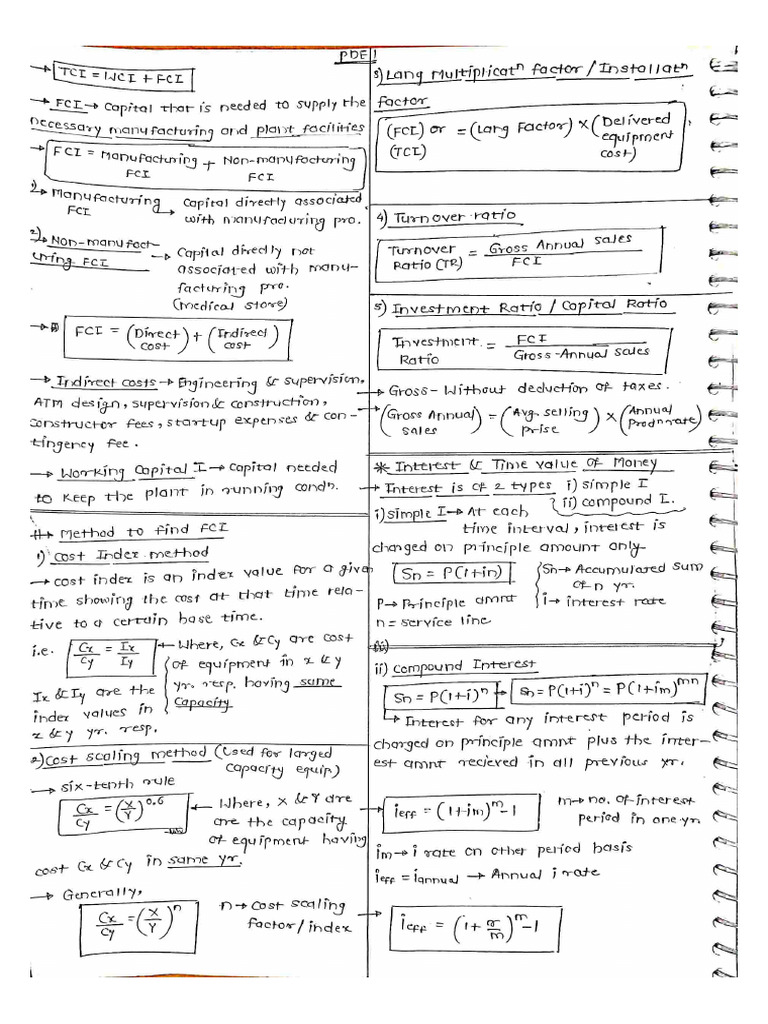 PDE 1
→ TCI = WCI + FCI
→ FCI → Capital that is needed to supply the
necessary manufacturing and plant facilities
→ FCI = Manufacturing FCI + Non-manufacturing FCI
1) → Manufacturing FCI → Capital directly associated
with manufacturing pro.
2) → Non-manufact-
uring FCI → Capital directly not
associated with manu-
facturing pro.
(medical store)
→ FCI = (Direct cost) + (Indirect cost)
→ Indirect costs → Engineering & supervision,
ATM design, supervision & construction,
constructor fees, startup expenses & con-
tingency fee.
→ Working Capital I → Capital needed
to keep the plant in running condn.
# → Method to find FCI
1) Cost Index method
→ cost index is an index value for a given
time showing the cost at that time rela-
tive to a certain base time.
i.e. Cx/Cy = Ix/Iy ← Where, Cx & Cy are cost
of equipment in x & y
yr. resp. having same
capacity
Ix & Iy are the
index values in
x & y yr. resp.
2) Cost scaling method (Used for larged
capacity equip.)
→ six-tenth rule
Cx/Cy = (X/Y)^0.6 ← Where, X & Y are
are the capacity
of equipment having
cost Cx & Cy in same yr.
→ Generally,
Cx/Cy = (X/Y)^n n → Cost scaling
factor/index
3) Lang Multiplicatn factor / Installatn
factor
(FCI) or (TCI) = (Lang Factor) × (Delivered equipment cost)
4) Turnover ratio
Turnover Ratio (TR) = Gross Annual Sales / FCI
5) Investment Ratio / Capital Ratio
Investment Ratio = FCI / Gross-Annual sales
→ Gross - Without deduction of taxes.
→ (Gross Annual sales) = (Avg. selling prise) × (Annual prodn rate)
* Interest & Time value of Money
→ Interest is of 2 types i) simple I
ii) compound I.
i) simple I → At each
time interval, interest is
charged on principle amount only.
Sn = P(1+in) Sn → Accumulated sum
of n yr.
P → Principle amnt i → interest rate
n = service line
ii) Compound Interest
Sn = P(1+i)^n → Sn = P(1+i)^n = P(1+im)^mn
→ Interest for any interest period is
charged on principle amnt plus the inter-
est amnt recieved in all previous yr.
→ ieff = (1+im)^m - 1 m → no. of interest
period in one yr
im → i rate on other period basis
ieff = iannual → Annual i rate
→ ieff = (1 + r/m)^m - 1